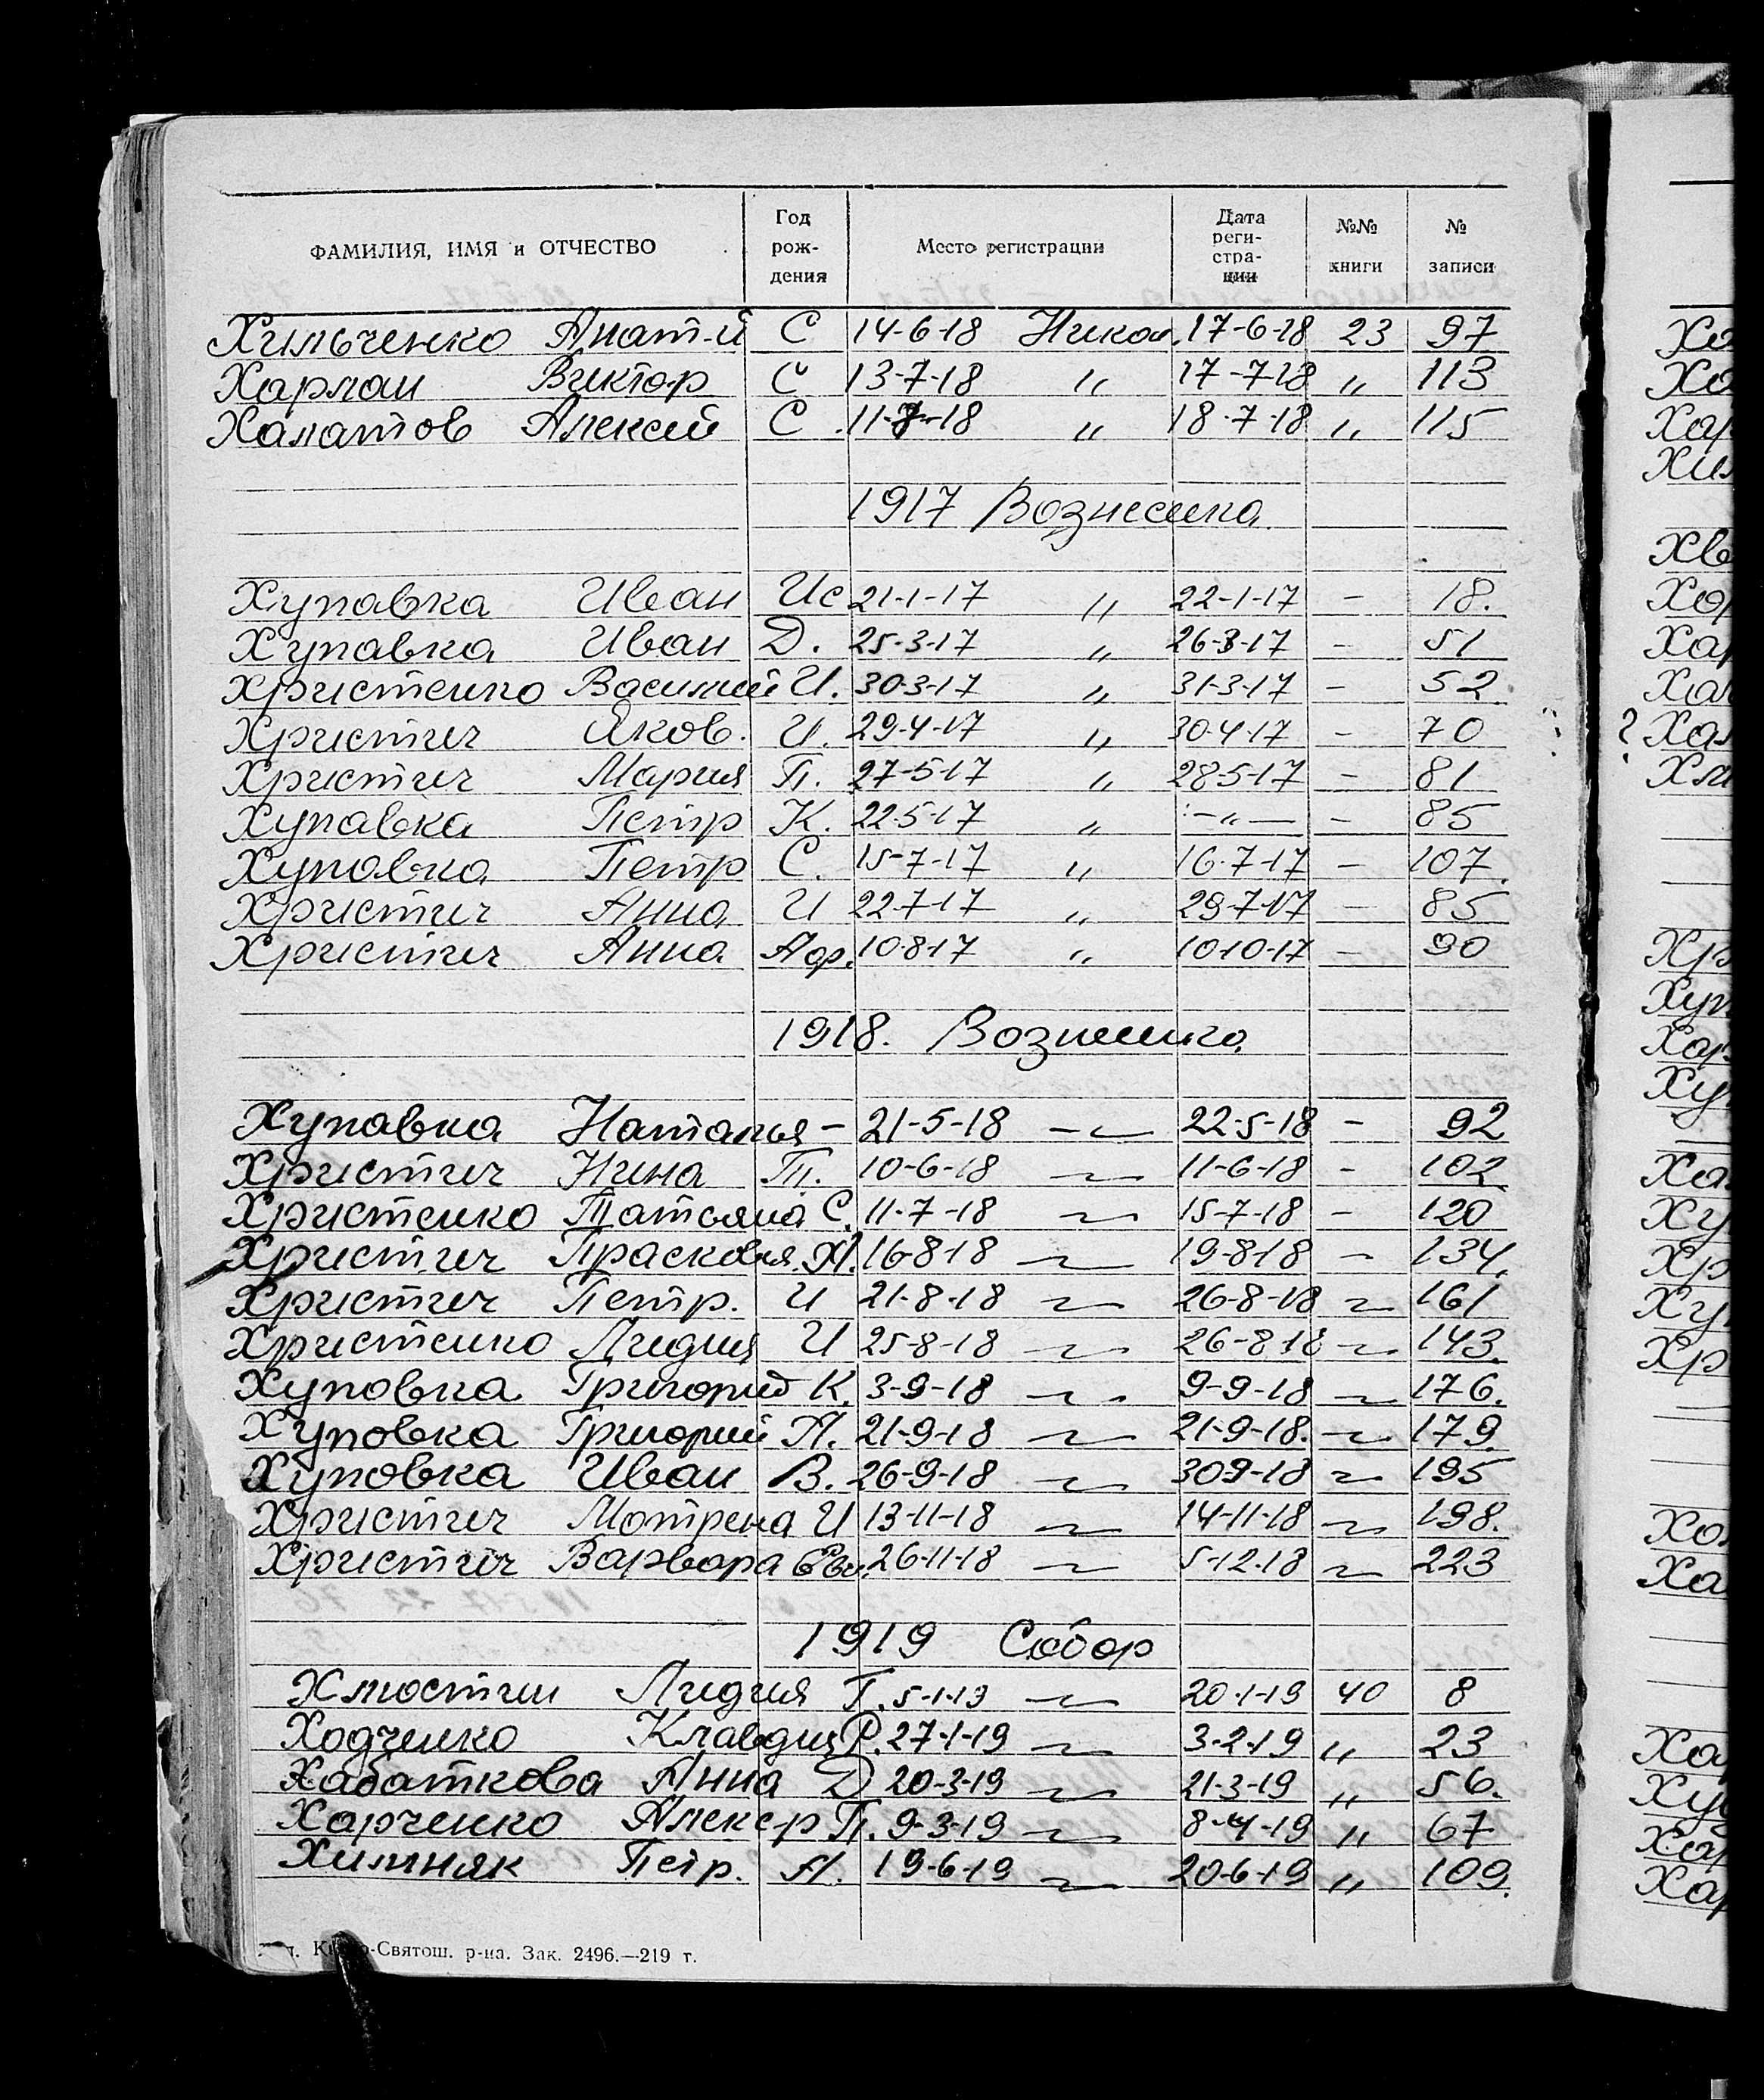 ФАМИЛИЯ, ИМЯ и ОТЧЕСТВО Год рож- дения Место регистрации Дата реги- стра- ции №№ книги № записи
Хильченко Анат-й С 14-6-18 Никол. 17-6-18 23 97
Харлан Виктор С 13-7-18 〃 17-7-18 〃 113
Халатов Алексей С 11-7-18 〃 18-7-18 〃 115
1917 Вознесенка
Хупавка Иван Ис 21-1-17 〃 22-1-17 - 18.
Хупавка Иван Д. 25-3-17 〃 26-3-17 - 51
Христенко Василий И. 30-3-17 〃 31-3-17 - 52
Христич Яков. И. 29-4-17 〃 30-4-17 - 70
Христич Мария П. 27-5-17 〃 28-5-17 - 81
Хупавка Петр К. 22-5-17 〃 -〃- - 85
Хуповка Петр С. 15-7-17 〃 16-7-17 - 107.
Христич Анна И 22-7-17 〃 29-7-17 - 85
Христич Анна Аф. 10-8-17 〃 10-10-17 - 90
1918. Вознесенка
Хупавка Наталья - 21-5-18 -〃- 22-5-18 - 92
Христич Нина Т. 10-6-18 〃 11-6-18 - 102
Христенко Татьяна С. 11-7-18 〃 15-7-18 - 120
Христич Прасковья А. 16-8-18 〃 19-8-18 - 134.
Христич Петр. И 21-8-18 〃 26-8-18 〃 161
Христенко Лидия И 25-8-18 〃 26-8-18 〃 143.
Хуповка Григорий К. 3-9-18 〃 9-9-18 〃 176.
Хуповка Григорий А. 21-9-18 〃 21-9-18. 〃 179.
Хуповка Иван В. 26-9-18 〃 30-9-18 〃 195
Христич Мотрена И 13-11-18 〃 14-11-18 〃 198.
Христич Варвара 26-11-18 〃 5-12-18 〃 223
1919 Собор
Хлюстин Лидия Г. 5-1-19 〃 20-1-19 40 8
Ходченко Клавдия Р. 27-1-19 〃 3-2-19 〃 23
Хабаткова Анна Д 20-3-19 〃 21-3-19 〃 56.
Харченко Алекс-р П. 9-3-19 〃 8-4-19 〃 67
Химняк Петр. А. 19-6-19 〃 20-6-19 〃 109.
-Святош. р-на. Зак. 2496.—219 т.